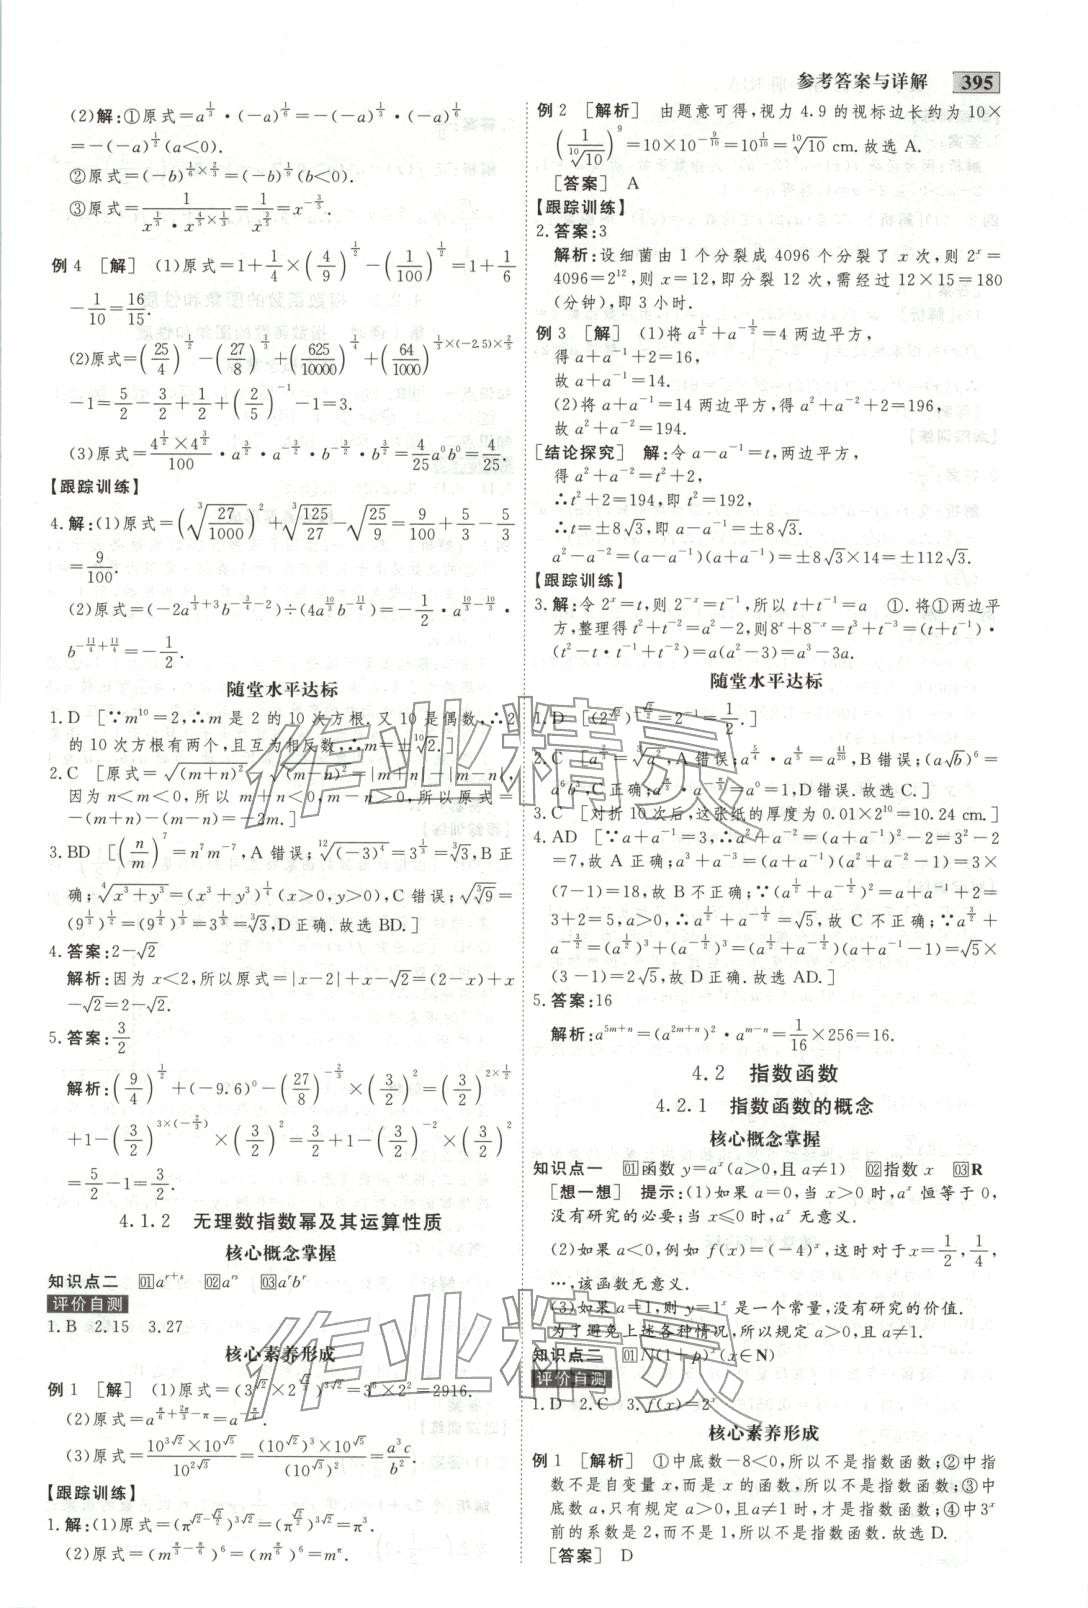 参考答案与详解 395
(2)解:①原式=a^{1/3}·(-a)^{1/6}=-(-a)^{1/3}·(-a)^{1/6}
=-(-a)^{1/2}(a<0).
②原式=(-b)^{1/6×2/3}=(-b)^{1/9}(b<0).
③原式=1/(x^{1/3}·x^{4/5×1/3})=1/x^{3/5}=x^{-3/5}.
例 4 [解] (1)原式=1+1/4×(4/9)^{1/2}-(1/100)^{1/2}=1+1/6
-1/10=16/15.
(2)原式=(25/4)^{1/2}-(27/8)^{1/3}+(625/10000)^{1/4}+(64/1000)^{1/3×(-2.5)×2/5}
-1=5/2-3/2+1/2+(2/5)^{-1}-1=3.
(3)原式=(4^{1/2}×4^{3/2})/100·a^{3/2}·a^{-3/2}·b^{-3/2}·b^{3/2}=4/25a^0b^0=4/25.
【跟踪训练】
4.解:(1)原式=(∛(27/1000))^2+∛(125/27)-√(25/9)=9/100+5/3-5/3
=9/100.
(2)原式=(-2a^{1/3+3}b^{-3/4-2})÷(4a^{10/3}b^{-11/4})=-1/2·a^{10/3-10/3}·
b^{-11/4+11/4}=-1/2.
随堂水平达标
1.D [∵m^{10}=2,∴m 是 2 的 10 次方根.又 10 是偶数,∴2
的 10 次方根有两个,且互为相反数,∴m=±\sqrt[10]{2}.]
2.C [原式=√(m+n)^2-√(m-n)^2=|m+n|-|m-n|,
因为 n<m<0,所以 m+n<0,m-n>0,所以原式=
-(m+n)-(m-n)=-2m.]
3.BD [(n/m)^7=n^7m^{-7},A 错误;\sqrt[12]{(-3)^4}=3^{1/3}=∛3,B 正
确;\sqrt[4]{x^3+y^3}=(x^3+y^3)^{1/4}(x>0,y>0),C 错误;√∛9=
(9^{1/3})^{1/2}=(9^{1/2})^{1/3}=3^{1/3}=∛3,D正确.故选 BD.]
4.答案:2-√2
解析:因为 x<2,所以原式=|x-2|+x-√2=(2-x)+x
-√2=2-√2.
5.答案:3/2
解析:(9/4)^{1/2}+(-9.6)^0-(27/8)^{-2/3}×(3/2)^2=(3/2)^{2×1/2}
+1-(3/2)^{3×(-2/3)}×(3/2)^2=3/2+1-(3/2)^{-2}×(3/2)^2
=5/2-1=3/2.
4.1.2 无理数指数幂及其运算性质
核心概念掌握
知识点二 01 a^{r+s} 02 a^{rs} 03 a^rb^r
评价自测
1.B 2.15 3.27
核心素养形成
例 1 [解] (1)原式=(3^{√2}×2^{√2/3})^{3√2}=3^6×2^2=2916.
(2)原式=a^{π/6+2π/3-π}=a^{-π/6}.
(3)原式=(10^{3√2}×10^{√5})/10^{2√3}=((10^{√2})^3×10^{√5})/(10^{√3})^2=a^3c/b^2.
【跟踪训练】
1.解:(1)原式=(π^{√2-√2/2})^{3√2}=(π^{√2/2})^{3√2}=π^3.
(2)原式=(m^{π/3-π/6})^6=(m^{π/6})^6=m^π.
例 2 [解析] 由题意可得,视力 4.9 的视标边长约为 10×
(1/\sqrt[10]{10})^9=10×10^{-9/10}=10^{1/10}=\sqrt[10]{10} cm.故选 A.
[答案] A
【跟踪训练】
2.答案:3
解析:设细菌由 1 个分裂成 4096 个分裂了 x 次,则 2^x=
4096=2^{12},则 x=12,即分裂 12 次,需经过 12×15=180
(分钟),即 3 小时.
例 3 [解] (1)将 a^{1/2}+a^{-1/2}=4 两边平方,
得 a+a^{-1}+2=16,
故 a+a^{-1}=14.
(2)将 a+a^{-1}=14 两边平方,得 a^2+a^{-2}+2=196,
故 a^2+a^{-2}=194.
[结论探究] 解:令 a-a^{-1}=t,两边平方,
得 a^2+a^{-2}=t^2+2,
∴t^2+2=194,即 t^2=192,
∴t=±8√3,即 a-a^{-1}=±8√3.
a^2-a^{-2}=(a-a^{-1})(a+a^{-1})=±8√3×14=±112√3.
【跟踪训练】
3.解:令 2^x=t,则 2^{-x}=t^{-1},所以 t+t^{-1}=a ①.将①两边平
方,整理得 t^2+t^{-2}=a^2-2,则8^x+8^{-x}=t^3+t^{-3}=(t+t^{-1})·
(t^2-t·t^{-1}+t^{-2})=a(a^2-3)=a^3-3a.
随堂水平达标
1.D [(2^{√2})^{-√2/2}=2^{-1}=1/2.]
2.C [a^{3/2}=√a^3,A 错误;a^{5/4}·a^{4/5}=a^{41/20},B 错误;(a√b)^6=
a^6b^3,C 正确;a^π·a^{-π}=a^0=1,D 错误.故选 C.]
3.C [对折 10 次后,这张纸的厚度为 0.01×2^{10}=10.24 cm.]
4.AD [∵a+a^{-1}=3,∴a^2+a^{-2}=(a+a^{-1})^2-2=3^2-2
=7,故 A 正确;a^3+a^{-3}=(a+a^{-1})(a^2+a^{-2}-1)=3×
(7-1)=18,故 B 不正确;∵(a^{1/2}+a^{-1/2})^2=a+a^{-1}+2=
3+2=5,a>0,∴a^{1/2}+a^{-1/2}=√5,故 C 不正确;∵a^{3/2}+
a^{-3/2}=(a^{1/2})^3+(a^{-1/2})^3=(a^{1/2}+a^{-1/2})(a+a^{-1}-1)=√5×
(3-1)=2√5,故 D 正确.故选 AD.]
5.答案:16
解析:a^{5m+n}=(a^{2m+n})^2·a^{m-n}=1/16×256=16.
4.2 指数函数
4.2.1 指数函数的概念
核心概念掌握
知识点一 01函数 y=a^x(a>0,且 a≠1) 02指数 x 03R
[想一想] 提示:(1)如果 a=0,当 x>0 时,a^x 恒等于 0,
没有研究的必要;当 x≤0 时,a^x 无意义.
(2)如果 a<0,例如 f(x)=(-4)^x,这时对于 x=1/2,1/4,
…,该函数无意义.
(3)如果 a=1,则 y=1^x 是一个常量,没有研究的价值.
为了避免上述各种情况,所以规定 a>0,且 a≠1.
知识点二 01 N(1+p)^x(x∈N)
评价自测
1.D 2.C 3.f(x)=2^x
核心素养形成
例 1 [解析] ①中底数-8<0,所以不是指数函数;②中指
数不是自变量 x,而是 x 的函数,所以不是指数函数;③中
底数 a,只有规定 a>0 且 a≠1 时,才是指数函数;④中3^x
前的系数是 2,而不是 1,所以不是指数函数.故选 D.
[答案] D
作业精灵
作业精灵